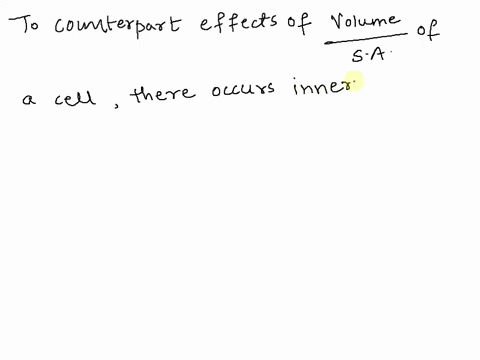 To counterpart effects of Volume / S.A. of
a cell, there occurs inner